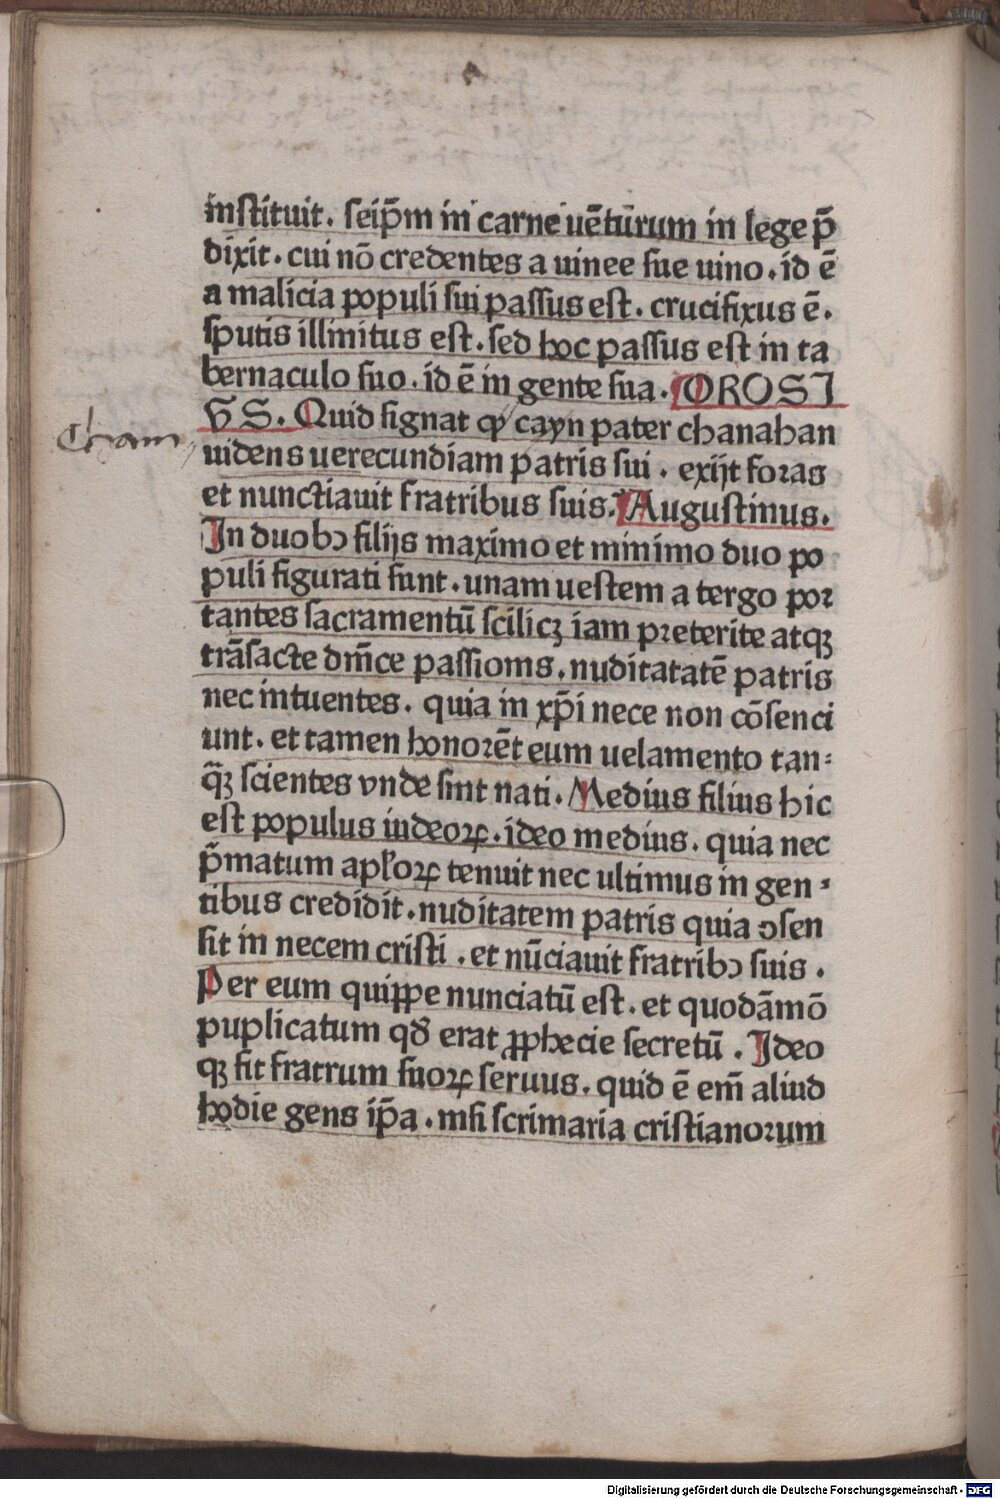 instituit. seip̄m in carne uētūrum in lege p̄
dixit. cui nō credentes a uinee sue uino. id ē
a malicia populi sui passus est. crucifixus ē.
sputis illinitus est. sed hoc passus est in ta
bernaculo suo. id ē in gente sua. ¶OROSI
VS. Quid signat ꝙ cayn pater chanahan
Cham
uidens uerecundiam patris sui. exijt foras
et nunctiauit fratribus suis. ¶Augustinus.
In duobꝰ filijs maximo et minimo duo po
puli figurati sunt. unam uestem a tergo por
tantes sacramentū scilicꝫ iam preterite atqꝫ
trāsacte dm̄ce passionis. nuditatatē patris
nec intuentes. quia in xp̄i nece non cōsenci
unt. et tamen honorēt eum uelamento tan⸗
q̄ꝫ scientes vnde sint nati. Medius filius hic
est populus iudeoꝝ. ideo medius. quia nec
p̄matum apl̓oꝝ tenuit nec ultimus in gen⸗
tibus credidit. nuditatem patris quia ꝯsen
sit in necem cristi. et nūciauit fratribꝰ suis.
Per eum quippe nunciatū est. et quodāmō
puplicatum qđ erat ꝓphecie secretū. Ideo
qꝫ fit fratrum suoꝝ seruus. quid ē em̄ aliud
hodie gens ip̄a. nisi scrimaria cristianorum
Digitalisierung gefördert durch die Deutsche Forschungsgemeinschaft - DFG